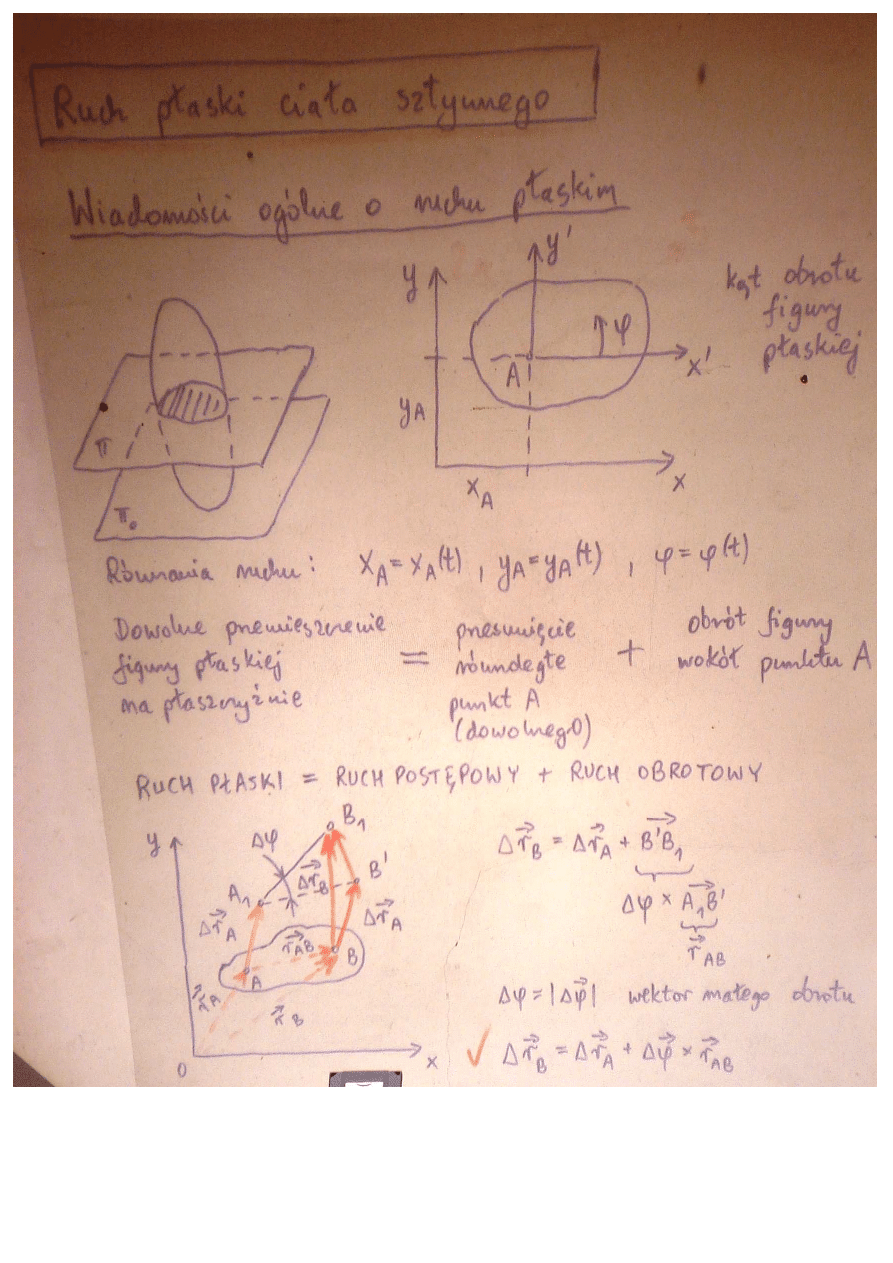 Ruch płaski ciała sztywnego
Wiadomości ogólne o ruchu płaskim
y
y'
kąt obrotu
figury
płaskiej
φ
x'
A
y_A
π
x_A
x
π₀
Równania ruchu: x_A = x_A(t), y_A = y_A(t), φ = φ(t)
Dowolne przemieszczenie
figury płaskiej
na płaszczyźnie
=
przesunięcie
równoległe
punkt A
(dowolnegO)
+
obrót figury
wokół punktu A
RUCH PŁASKI = RUCH POSTĘPOWY + RUCH OBROTOWY
y
Δφ
B₁
Δr⃗_B
B'
A₁
Δr⃗_A
Δr⃗_A
r⃗_AB
B
A
r⃗_A
r⃗_B
0
x
Δr⃗_B = Δr⃗_A + B'B₁⃗
Δφ × A₁B'⃗
r⃗_AB
Δφ = |Δφ⃗| wektor małego obrotu
✓ Δr⃗_B = Δr⃗_A + Δφ⃗ × r⃗_AB